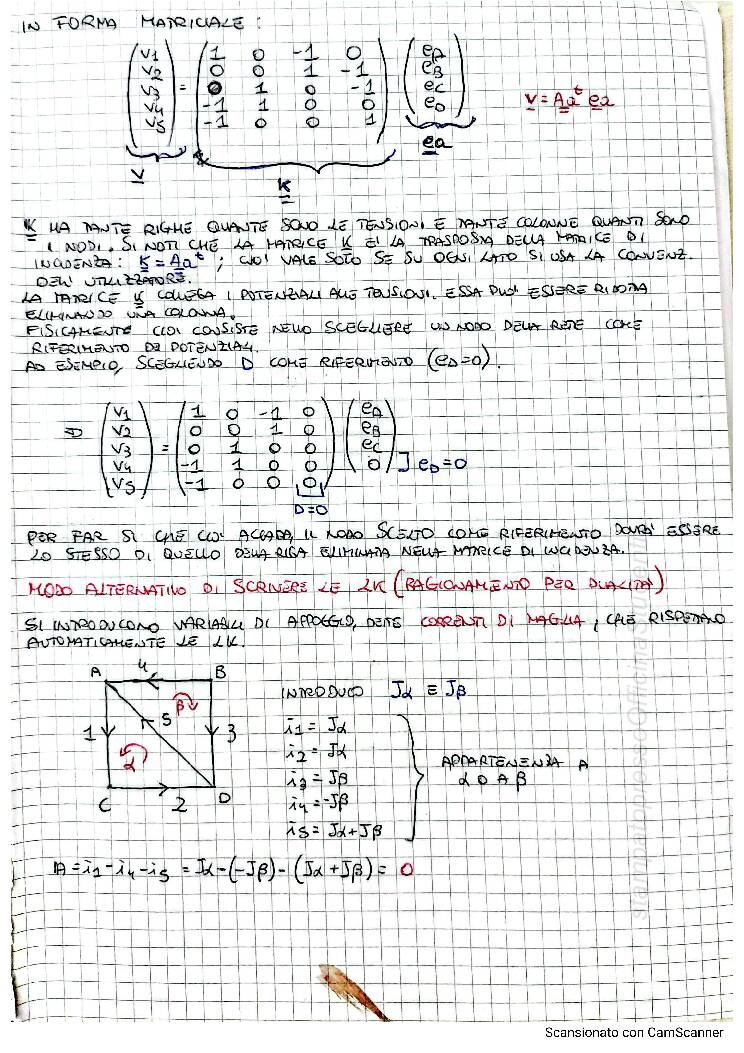 IN FORMA MATRICIALE:
(v1 v2 v3 v4 v5) = (1 0 -1 0
0 0 1 -1
0 1 0 -1
-1 1 0 0
-1 0 0 1) (eA eB eC eD)
v = Aa^t ea
v
K
ea
K HA TANTE RIGHE QUANTE SONO LE TENSIONI E TANTE COLONNE QUANTI SONO
I NODI. SI NOTI CHE LA MATRICE K E' LA TRASPOSTA DELLA MATRICE DI
INCIDENZA: K = Aa^t ; CIO' VALE SOLO SE SU OGNI LATO SI USA LA CONVENZ.
DELL'UTILIZZATORE.
LA MATRICE K COLLEGA I POTENZIALI ALLE TENSIONI. ESSA PUO' ESSERE RIDOTTA
ELIMINANDO UNA COLONNA.
FISICAMENTE CIO' CONSISTE NELLO SCEGLIERE UN NODO DELLA RETE COME
RIFERIMENTO DI POTENZIALI.
AD ESEMPIO, SCEGLIENDO D COME RIFERIMENTO (eD=0).
⇒ (v1 v2 v3 v4 v5) = (1 0 -1 0
0 0 1 0
0 1 0 0
-1 1 0 0
-1 0 0 0) (eA eB eC 0) ] eD=0
D=0
PER FAR SI CHE CIO' ACCADA, IL NODO SCELTO COME RIFERIMENTO DOVRA' ESSERE
LO STESSO DI QUELLO DELLA RIGA ELIMINATA NELLA MATRICE DI INCIDENZA.
MODO ALTERNATIVO DI SCRIVERE LE LK (RAGIONAMENTO PER DUALITA')
SI INTRODUCONO VARIABILI DI APPOGGIO, DETTE CORRENTI DI MAGLIA, CHE RISPETTANO
AUTOMATICAMENTE LE LK.
A 4 B
1 5 β 3
α
C 2 D
INTRODUCO Jα E Jβ
i1 = Jα
i2 = Jα
i3 = Jβ
i4 = -Jβ
i5 = Jα+Jβ
APPARTENENZA A
α O A β
A = i1 - i4 - i5 = Jα - (-Jβ) - (Jα + Jβ) = 0
stampato presso Officina Studenti
Scansionato con CamScanner